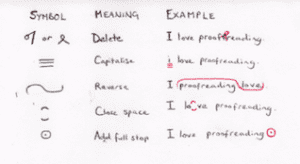 SYMBOL MEANING EXAMPLE
or Delete I love prooffreading.
Capitalise i love proofreading.
Reverse I proofreading love.
Close space I lo ve proofreading.
Add full stop I love proofreading